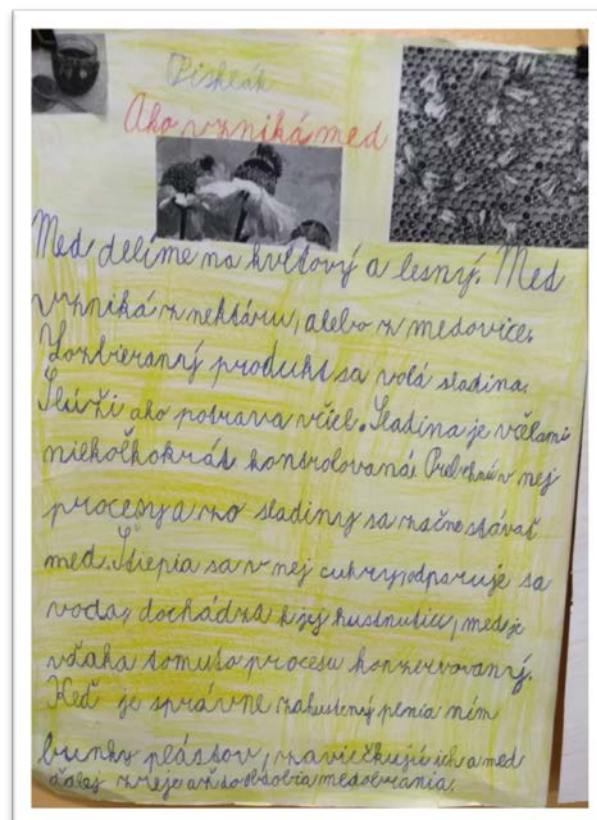 Ako vzniká med
Med delíme na kvetový a lesný. Med
vzniká z nektáru, alebo z medovice.
Pozbieranný produkt sa volá sladina.
Slúži ako potrava včiel. Sladina je včelami
niekoľkokrát kontrolovaná. Prebehnú v nej
procesy a zo sladiny sa začne stávať
med. Štiepia sa v nej cukry, odparuje sa
voda, dochádza k jej hustnutiu, med je
vďaka tomuto procesu konzervovanný.
Keď je správne zahustený plnia ním
bunky plástov, zaviečkujú ich a med
ďalej zreje až do obdobia medobrania.